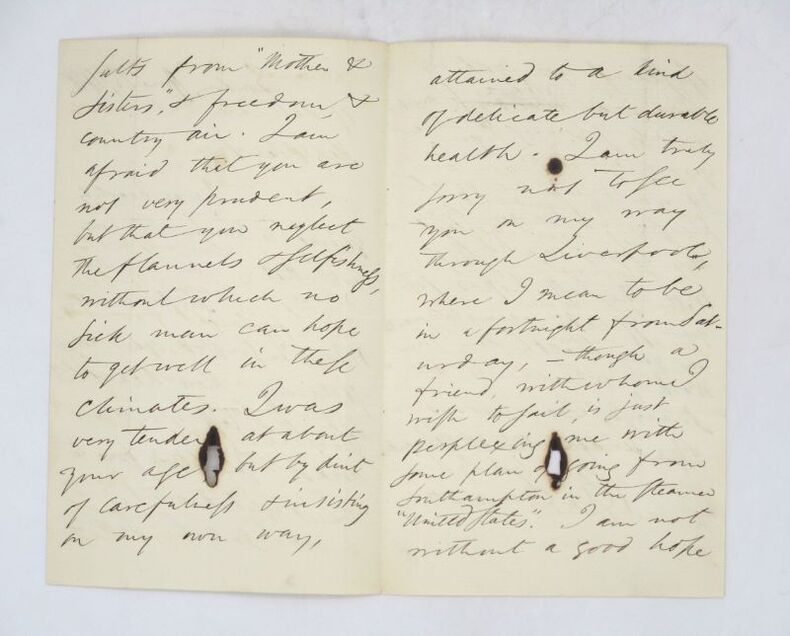 sults from "Mother &
Sisters," & freedom, &
country air. I am
afraid that you are
not very prudent,
but that you neglect
the flannels & selfishness,
without which no
sick man can hope
to get well in these
climates. I was
very tender at about
your age but by dint
of carefulness & insisting
on my own way,
attained to a kind
of delicate but durable
health. I am truly
sorry not to see
you on my way
through Liverpool,
where I mean to be
in a fortnight from Sat-
urday, – though a
friend, with whom I
wish to sail, is just
perplexing me with
some plan of going from
Southampton in the steamer
"United States". I am not
without a good hope